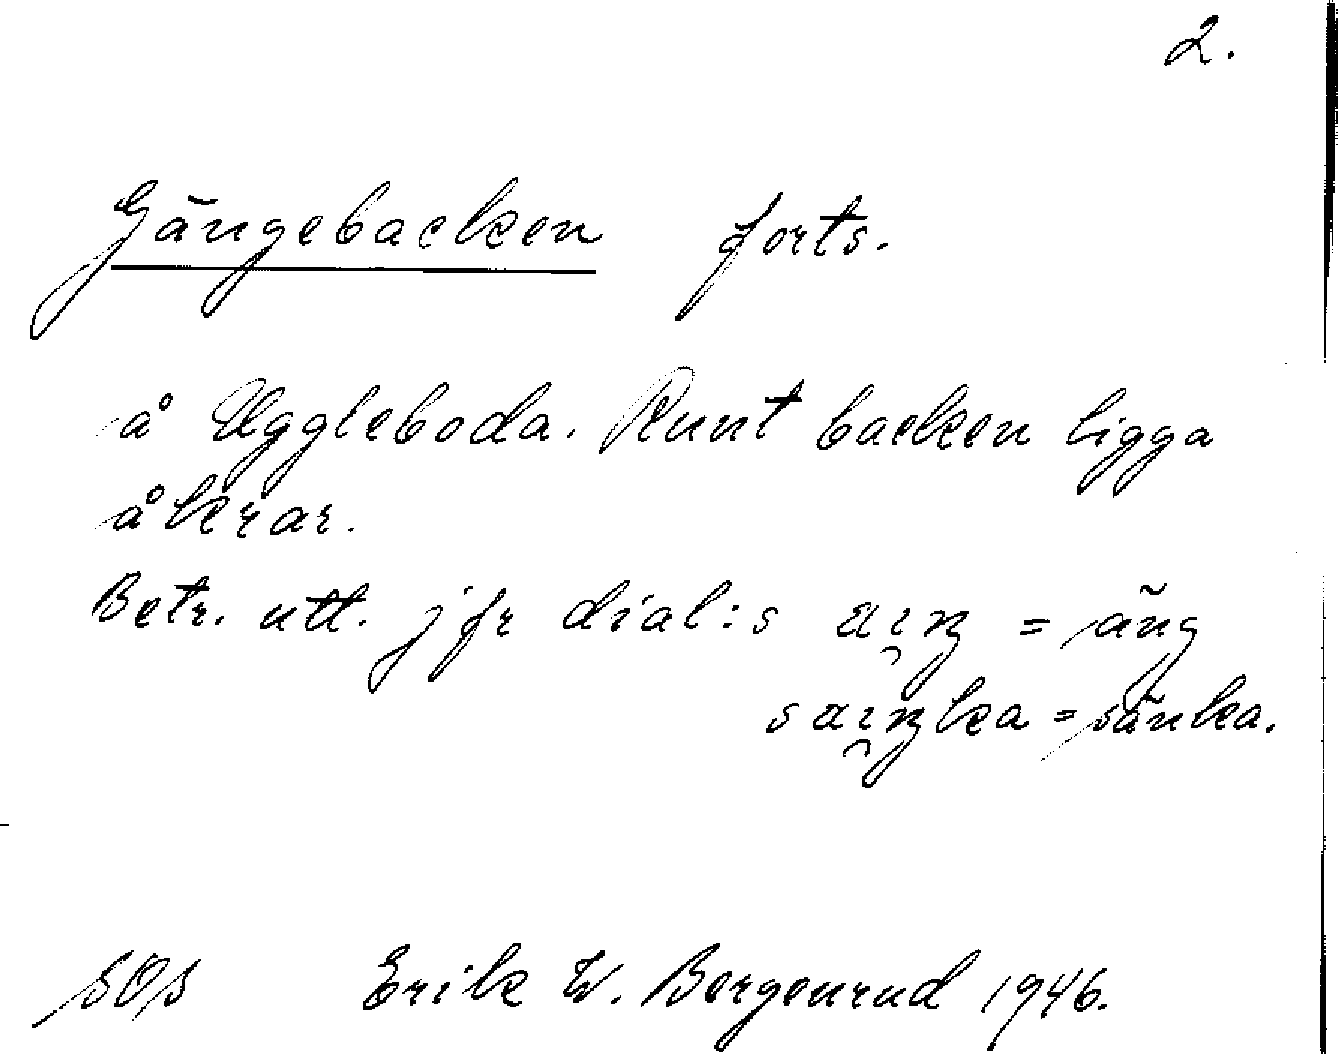 2.
Gängebacken forts.
å Uggleboda. Runt backen ligga
åkrar.
Betr. utt. jfr dial:s = äng
= sänka.
SOs Erik W. Bergenrud 1946.